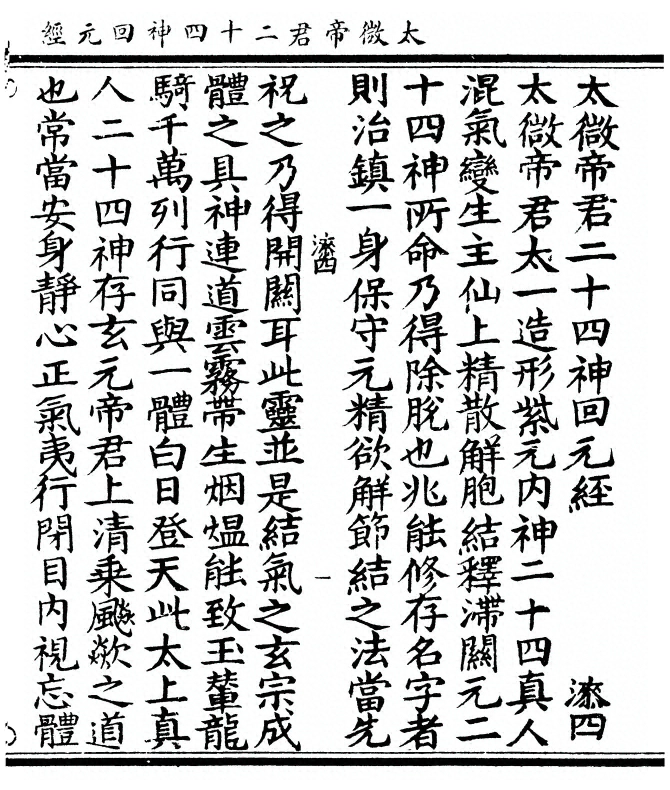 太微帝君二十四神回元經
太微帝君二十四神回元經 漆四
太微帝君太一造形紫元內神二十四真人
混氣變生主仙上精散解胞結釋滯關元二
十四神所命乃得除脫也兆能修存名字者
則治鎮一身保守元精欲解節結之法當先
漆四 一
祝之乃得開關耳此靈並是結氣之玄宗成
體之具神連道雲霧帶生烟熅能致玉輦龍
騎千萬列行同與一體白日登天此太上真
人二十四神存玄元帝君上清乘飈歘之道
也常當安身靜心正氣夷行閉目內視忘體